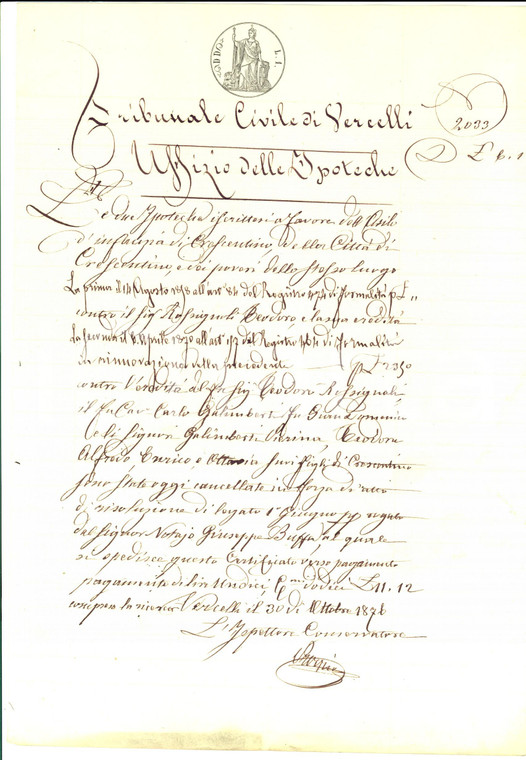 L. 1.
2033
Tribunale Civile di Vercelli
Uffizio delle Ipoteche
Le due Ipoteche iscritte a favore dell'Asilo
d'infanzia di Crescentino, della Città di
Crescentino, e dei poveri dello stesso luogo
La prima il 14 Agosto 1858 all'art. del Registro di formalità
contro il Sig. Rossignoli Teodoro, e la sua eredità
la seconda il Aprile 1870 all'art. del Registro di formalità
in rinnovazione della precedente
contro l'eredità del fu Sig. Teodoro Rossignoli,
il fu Cav. Carlo Galimberti fu
e li Signori Galimberti Teodoro
Alfredo Enrico, e Ottavia suoi figli di Crescentino
sono state oggi cancellate in forza di atto
di risoluzione di legato 1° Giugno pp. rogato
dal Signor Notajo Giuseppe Buffa, al quale
si spedisce questo Certificato verso pagamento
pagamento di lire Undici, Cmi dodici L. 11.12
compresa la ricerca Vercelli il 30 di Ottobre 1876
L'Ispettore Conservatore